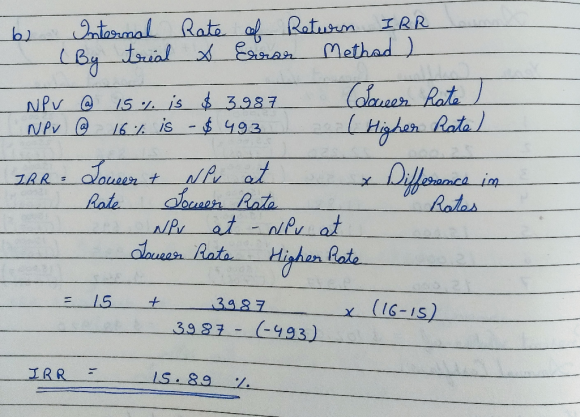 b) Internal Rate of Return IRR
(By trial & Error Method)
NPV @ 15 % is $ 3987 (Lower Rate)
NPV @ 16 % is - $ 493 (Higher Rate)
IRR = Lower + NPV at x Difference in
Rate Lower Rate Rates
NPV at - NPV at
Lower Rate Higher Rate
= 15 + 3987 x (16-15)
3987 - (-493)
IRR = 15.89 %